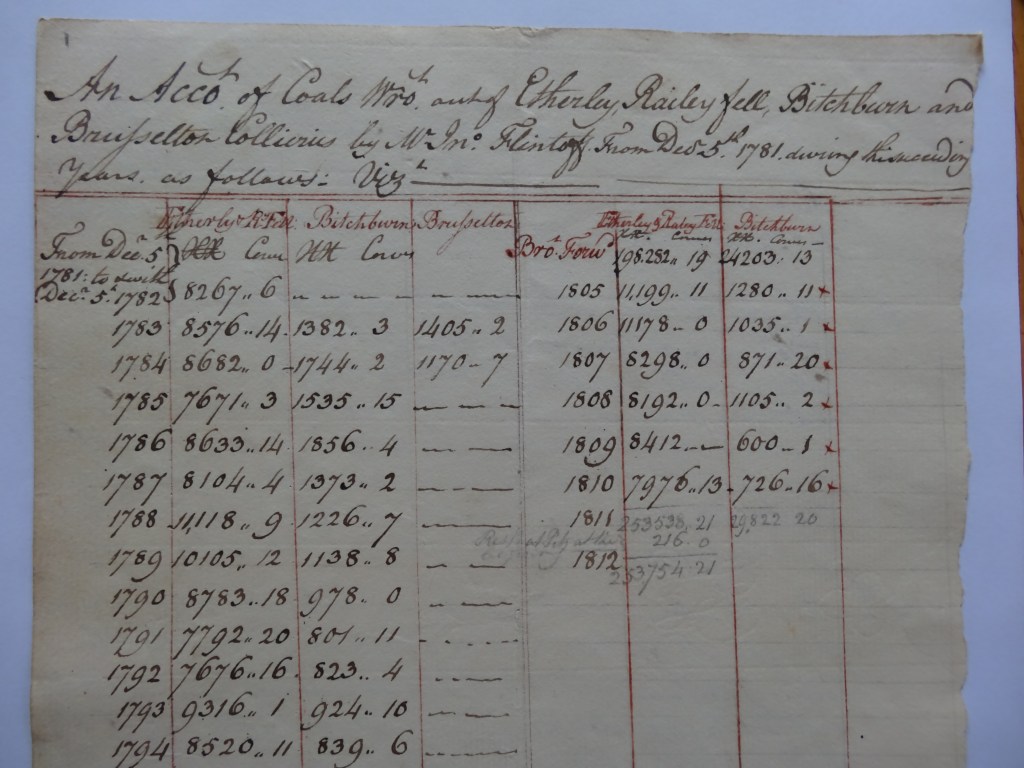 An Acct. of Coals Wrot. out of Etherley, Railey fell, Bitchburn and
Brusselton Collieries by Mr. Jno. Flintoff From Decr. 5th. 1781. during
Years. as follows: Vizt
Etherly & R: Fell Bitchburn Brusselton
From Decr. 5 HH Corvs HH Corvs
1781: to Decr. 5th. 1782 8267 ,, 6
1783 8576 ,, 14 1382 ,, 3 1405 ,, 2
1784 8682 ,, 0 1744 ,, 2 1170 ,, 7
1785 7671 ,, 3 1535 ,, 15
1786 8633 ,, 14 1856 ,, 4
1787 8104 ,, 4 1373 ,, 2
1788 11,118 ,, 9 1226 ,, 7
1789 10105 ,, 12 1138 ,, 8
1790 8783 ,, 18 978 ,, 0
1791 7792 ,, 20 801 ,, 11
1792 7676 ,, 16 823 ,, 4
1793 9316 ,, 1 924 ,, 10
1794 8520 ,, 11 839 ,, 6
Etherley & Railey Fell Bitchburn
HH. Corves HH. Corves
Brot. Forwd 198.252 ,, 19 24203 ,, 13
1805 11,199 ,, 11 1280 ,, 11 x
1806 11178 ,, 0 1035 ,, 1 x
1807 8298 ,, 0 871 ,, 20 x
1808 8192 ,, 0 1105 ,, 2 x
1809 8412 ,, — 600 ,, 1 x
1810 7976 ,, 13 726 ,, 16 x
1811 253538 21 29822 20
216 0
1812 253754 21